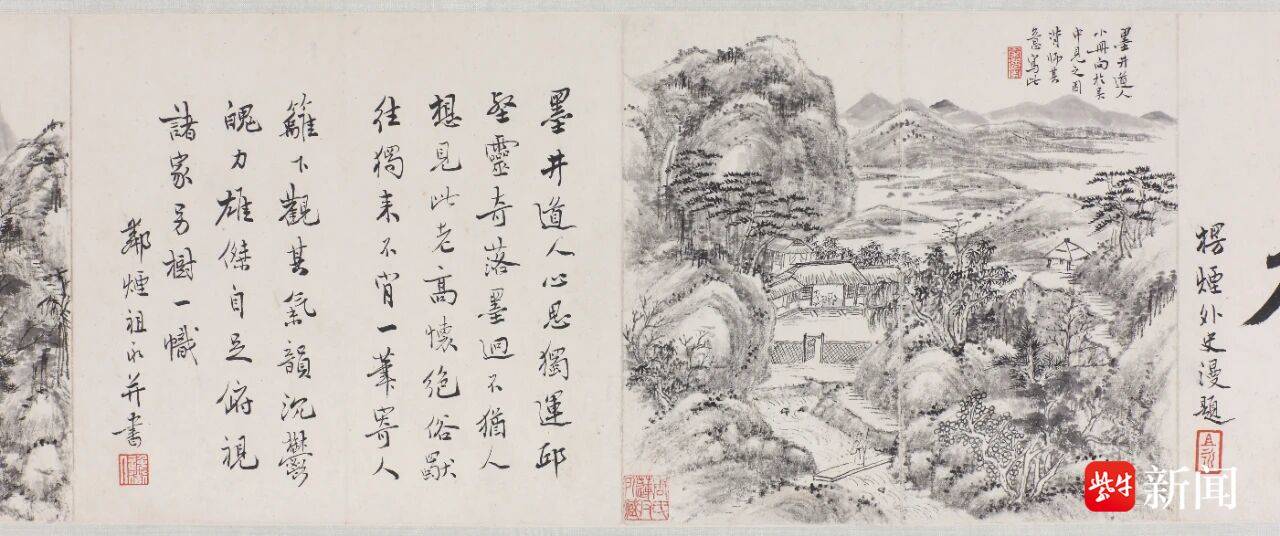 楞煙外史漫題
墨井道人
小冊向於吳
中見之因
背師其
意寫此
墨井道人心思獨運邱
壑靈奇落墨迥不猶人
想見此老高懷絶俗
往獨來不肯一筆寄人
籬下觀其氣韻沉鬱
魄力雄傑自足俯視
諸家另樹一幟
煙祖永并書
紫牛新闻